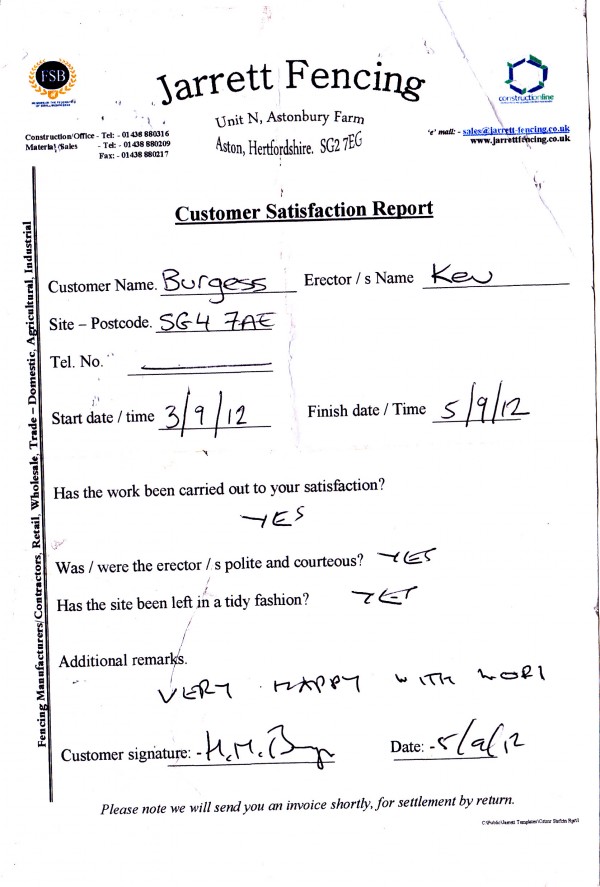 FSB
Jarrett Fencing
constructionline
Unit N, Astonbury Farm
Aston, Hertfordshire. SG2 7EG
Construction/Office - Tel: - 01438 880316
Material Sales - Tel: - 01438 880209
Fax: - 01438 880217
'e' mail: - sales@jarrett-fencing.co.uk
www.jarrettfencing.co.uk
Customer Satisfaction Report
Customer Name. Burgess Erector / s Name Kev
Site – Postcode. SG4 7AE
Tel. No.
Start date / time 3/9/12 Finish date / Time 5/9/12
Has the work been carried out to your satisfaction?
YES
Was / were the erector / s polite and courteous? YES
Has the site been left in a tidy fashion? YES
Additional remarks.
VERY HAPPY WITH WORK
Customer signature: - H.M.
Date: - 5/9/12
Please note we will send you an invoice shortly, for settlement by return.
Fencing Manufacturers/Contractors, Retail, Wholesale, Trade – Domestic, Agricultural, Industrial